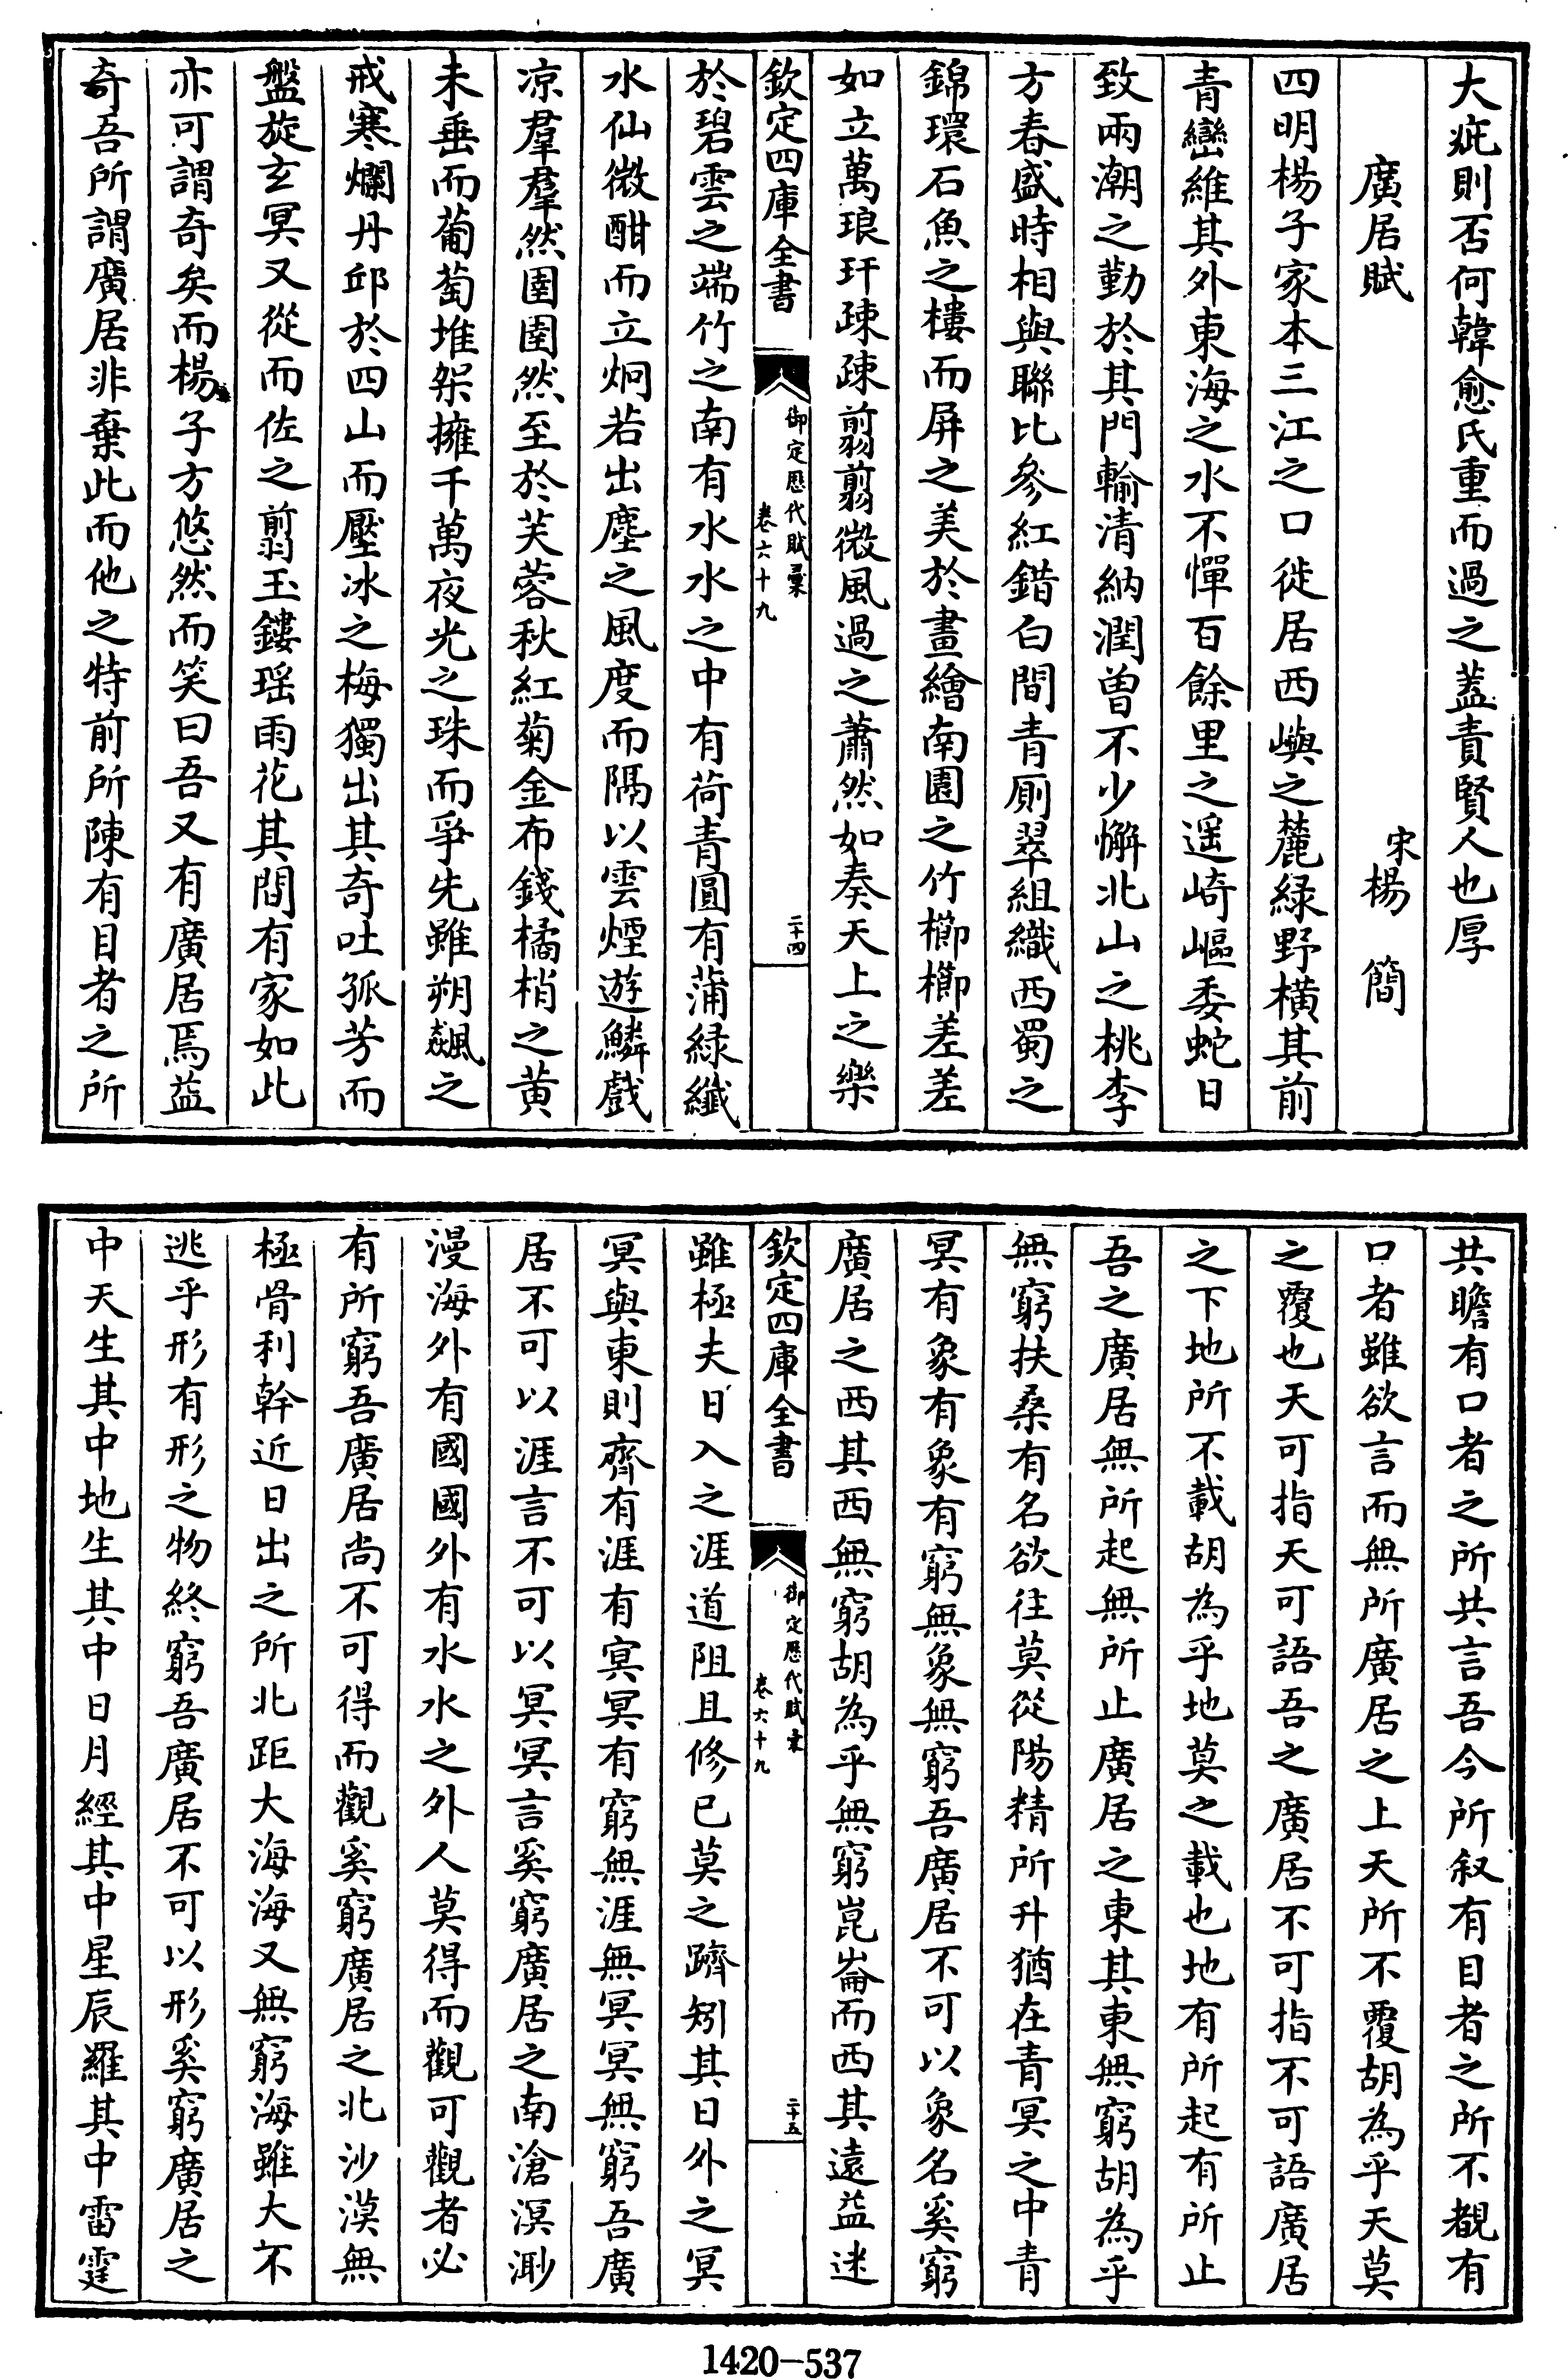 大疵則否何韓愈氏重而過之蓋責賢人也厚
廣居賦　宋楊　簡
四明楊子家本三江之口徙居西嶼之麓緑野橫其前
青巒維其外東海之水不憚百餘里之遥崎嶇委蛇日
致兩潮之勤於其門輸清納潤曾不少懈北山之桃李
方春盛時相與聯比參紅錯白間青厠翠組織西蜀之
錦環石魚之樓而屏之美於畫繪南園之竹櫛櫛差差
如立萬琅玕疎疎翦翦微風過之蕭然如奏天上之樂
欽定四庫全書　御定歷代賦彙　卷六十九　二十四
於碧雲之端竹之南有水水之中有荷青圓有蒲緑纖
水仙微酣而立炯若出塵之風度而隔以雲煙遊鱗戲
凉羣羣然圉圉然至於芙蓉秋紅菊金布錢橘梢之黄
未垂而葡萄堆架擁千萬夜光之珠而爭先雖朔飈之
戒寒爛丹邱於四山而壓冰之梅獨出其奇吐孤芳而
盤旋玄冥又從而佐之翦玉鏤瑶雨花其間有家如此
亦可謂奇矣而楊子方悠然而笑曰吾又有廣居焉益
奇吾所謂廣居非棄此而他之特前所陳有目者之所
共瞻有口者之所共言吾今所叙有目者之所不覩有
口者雖欲言而無所廣居之上天所不覆胡為乎天莫
之覆也天可指天可語吾之廣居不可指不可語廣居
之下地所不載胡為乎地莫之載也地有所起有所止
吾之廣居無所起無所止廣居之東其東無窮胡為乎
無窮扶桑有名欲往莫從陽精所升猶在青冥之中青
冥有象有象有窮無象無窮吾廣居不可以象名奚窮
廣居之西其西無窮胡為乎無窮崑崙而西其遠益迷
欽定四庫全書　御定歷代賦彙　卷六十九　二十五
雖極夫日入之涯道阻且修已莫之躋矧其日外之冥
冥與東則齊有涯有冥冥有窮無涯無冥冥無窮吾廣
居不可以涯言不可以冥冥言奚窮廣居之南滄溟渺
漫海外有國國外有水水之外人莫得而觀可觀者必
有所窮吾廣居尚不可得而觀奚窮廣居之北沙漠無
極骨利幹近日出之所北距大海海又無窮海雖大不
逃乎形有形之物終窮吾廣居不可以形奚窮廣居之
中天生其中地生其中日月經其中星辰羅其中雷霆
1420-537